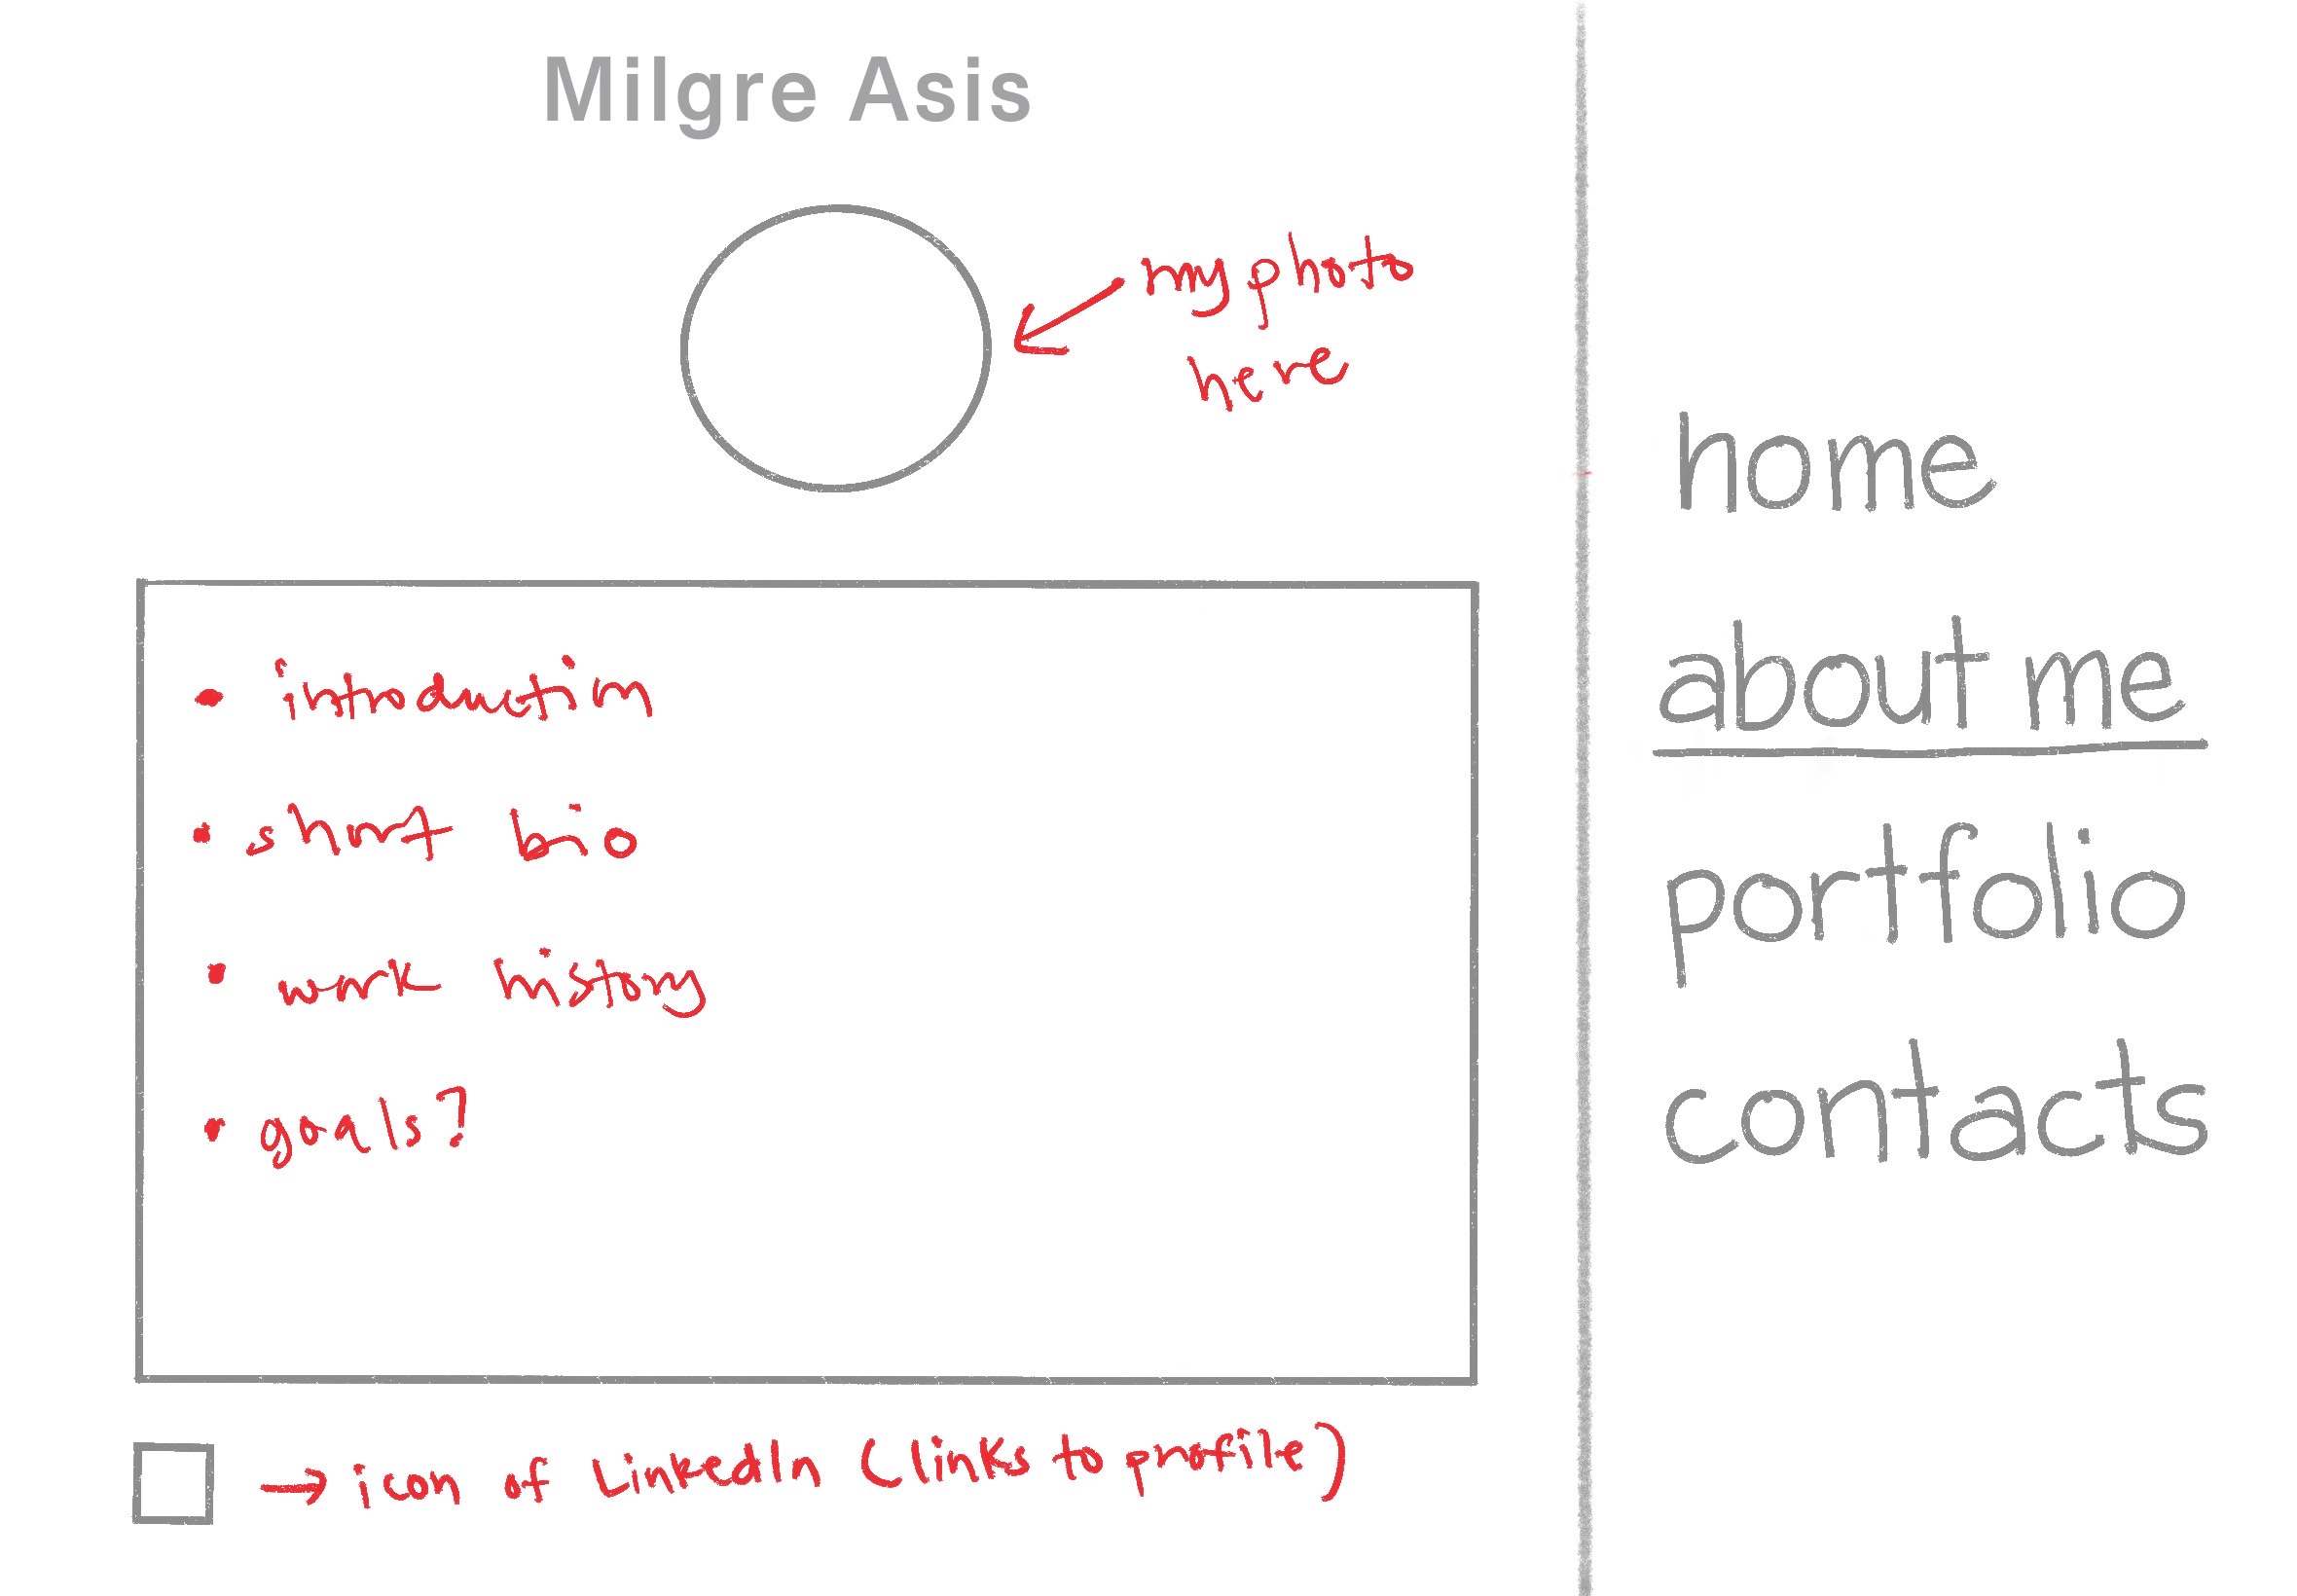 Milgre Asis
my photo
here
• introduction
• short bio
• work history
• goals?
→ icon of LinkedIn (links to profile)
home
about me
portfolio
contacts